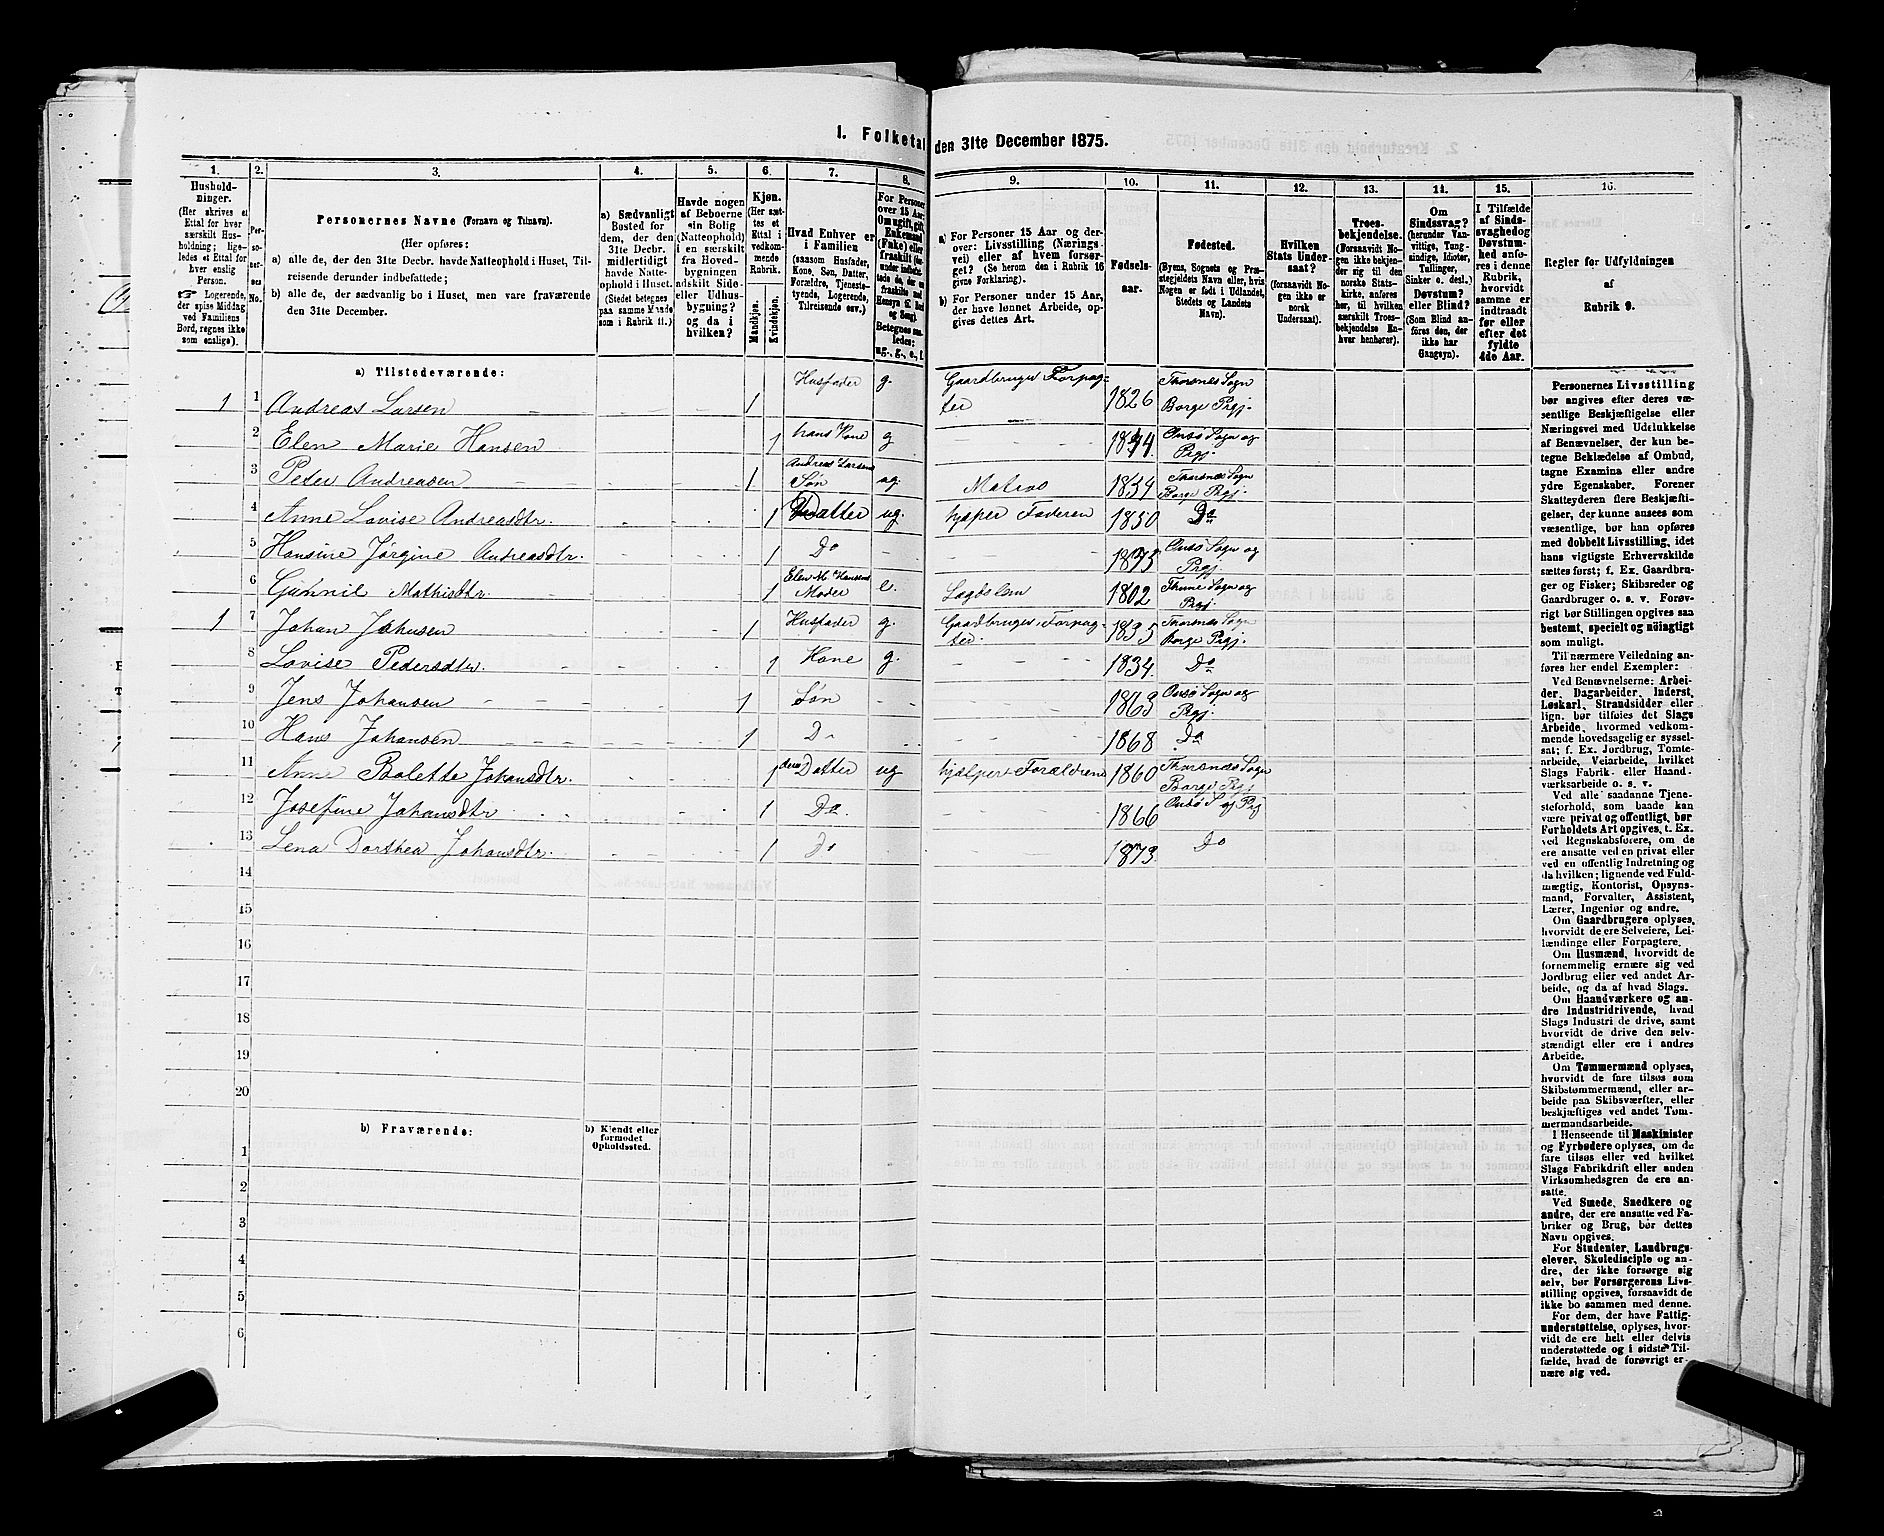 1. Folketal
den 31te December 1875.
1. 2. 3. 4. 5. 6. 7. 8. 9. 10. 11. 12. 13. 14. 15. 16.
Hushold-
ninger.
(Her skrives et
Ettal for hver
særskilt Hus-
holdning; lige-
ledes et Ettal for
hver enslig
Person.
☞ Logerende,
der spise Middag
ved Familiens
Bord, regnes ikke
som enslige).
Per-
so-
ner-
nes
No.
Personernes Navne (Fornavn og Tilnavn).
(Her opføres:
a) alle de, der den 31te Decbr. havde Natteophold i Huset, Til-
reisende derunder indbefattede;
b) alle de, der sædvanlig bo i Huset, men vare fraværende
den 31te December.
a) Sædvanligt
Bosted for
dem, der den
31te Decbr.
midlertidigt
havde Natte-
ophold i Huset.
(Stedet betegnes
paa samme Maade
som i Rubrik 11.)
Havde nogen
af Beboerne
sin Bolig
(Natteophold)
i en særskilt
fra Hoved-
bygningen
adskilt Side-
eller Udhus-
bygning?
og da i
hvilken?
Kjøn.
(Her sæt-
tes et
Ettal i
vedkom-
mende
Rubrik.
Mandkjøn.
Kvindekjøn.
Hvad Enhver er
i Familien
(saasom Husfader,
Kone, Søn, Datter,
Forældre, Tjeneste-
tyende, Logerende,
Tilreisende osv.)
For Personer
over 15 Aar:
Om ugift, gift,
Enkemand
(Enke) eller
fraskilt
Betegnes saa-
ledes:
ug., g., e., f.
a) For Personer 15 Aar og der-
over: Livsstilling (Nærings-
vei) eller af hvem forsør-
get? (Se herom den i Rubrik 16
givne Forklaring).
b) For Personer under 15 Aar,
der have lønnet Arbeide, op-
gives dettes Art.
Fødsels-
aar.
Fødested.
(Byens, Sognets og Præ-
stegjeldets Navn eller, hvis
Nogen er født i Udlandet,
Stedets og Landets
Navn).
Hvilken
Stats Under-
saat?
(forsaavidt No-
gen ikke er
norsk
Undersaat).
Troes-
bekjendelse.
(Forsaavidt No-
gen ikke bekjen-
der sig til den
norske Stats-
kirke, anføres
her, til hvilken
særskilt Troes-
bekjendelse En-
hver henhører).
Om
Sindssvag?
(herunder Van-
vittige, Tung-
sindige, Idioter,
Tullinger,
Sinker o. desl.)
Døvstum?
eller Blind?
(Som Blind an-
føres den, der
ikke har
Gangsyn).
I Tilfælde
af Sinds-
svaghed og
Døvstum-
hed anfø-
res i denne
Rubrik,
hvorvidt
samme er
indtraadt
før eller
efter det
fyldte
4de Aar.
Regler for Udfyldningen
af
Rubrik 9.
a) Tilstedeværende:
1 1 Andreas Larsen 1 Husfader g. Gaardbruger Forpag-
ter 1826 Thorsnes Sogn
Borge Prgj.
2 Elen Marie Hansen 1 hans Kone g 1834 Onsø Sogn og
Prgj.
3 Peter Andreasen 1 Andreas Larsens
Søn ug. Matros 1854 Thorsnes Sogn
Borge Prgj.
4 Anne Lovise Andreasdtr. 1 Datter ug. hjelper Faderen 1850 Do
5 Hansine Jørgine Andreasdtr. 1 Do 1875 Onsø Sogn og
Prgj.
6 Gunnil Mathisdtr. 1 Elen M. Hansens
Moder e. 1802 Thune Sogn og
Prgj.
1 7 Johan Johnsen 1 Husfader g. Gaardbruger Forpag-
ter 1835 Thorsnes Sogn
Borge Prgj.
8 Lovise Pedersdtr. 1 Kone g. 1834. Do
9 Jens Johansen 1 Søn 1863 Onsø Sogn og
Prgj.
10 Hans Johansen 1 Do 1868 Do
11 Anne Bolette Johansdtr. 1 Datter ug hjælper Forældrene 1860 Thorsnes Sogn
Borge Prgj
12 Josefine Johansdtr 1 Do. 1866 Onsø S og Prgj
13 Lena Dorthea Johansdtr. 1 Do 1873. Do
14
15
16
17
18
19
20
b) Fraværende:
b) Kjendt eller
formodet
Opholdssted.
1
2
3
4
5
6
Personernes Livsstilling
bør angives efter deres væ-
sentlige Beskjæftigelse eller
Næringsvei med Udelukkelse
af Benævnelser, der kun be-
tegne Beklædelse af Ombud,
tagne Examina eller andre
ydre Egenskaber. Forener
Skatteyderen flere Beskjæfti-
gelser, der kunne ansees som
væsentlige, bør han opføres
med dobbelt Livsstilling, idet
hans vigtigste Erhvervskilde
sættes først; f. Ex. Gaardbru-
ger og Fisker; Skibsreder og
Gaardbruger o. s. v. Forøv-
rigt bør Stillingen opgives saa
bestemt, specielt og nøiagtigt
som muligt.
Til nærmere Veiledning an-
føres her endel Exempler:
Ved Benævnelserne: Arbei-
der, Dagarbeider, Inderst,
Løskarl, Strandsidder eller
lign. bør tilføies det Slags
Arbeide, hvormed vedkom-
mende hovedsagelig er syssel-
sat; f. Ex. Jordbrug, Tomte-
arbeide, Veiarbeide, hvilket
Slags Fabrik- eller Haand-
værksarbeide o. s. v.
Ved alle saadanne Tjene-
steforhold, som baade kan
være privat og offentligt, bør
Forholdets Art opgives, t. Ex.
ved Regnskabsførere, om de
ere ansatte ved en privat eller
ved en offentlig Indretning og
da hvilken; lignende ved Fuld-
mægtig, Kontorist, Opsyns-
mand, Forvalter, Assistent,
Lærer, Ingeniør og andre.
Om Gaardbrugere oplyses,
hvorvidt de ere Selveiere, Lei-
lændinge eller Forpagtere.
Om Husmænd, hvorvidt de
fornemmelig ernære sig ved
Jordbrug eller ved andet Ar-
beide, og da af hvad Slags.
Om Haandværkere og an-
dre Industridrivende, hvad
Slags Industri de drive, samt
hvorvidt de drive den selv-
stændigt eller ere i andres
Arbeide.
Om Tømmermænd oplyses,
hvorvidt de fare tilsøs som
Skibstømmermænd, eller ar-
beide paa Skibsværfter, eller
beskjæftiges ved andet Tøm-
mermandsarbeide.
I Henseende til Maskinister
og Fyrbødere oplyses, om de
fare tilsøs eller ved hvilket
Slags Fabrikdrift eller anden
Virksomhedsgren de ere an-
satte.
Ved Smede, Snedkere og
andre, der ere ansatte ved Fa-
briker og Brug, bør dettes
Navn opgives.
For Studenter, Landbrugs-
elever, Skoledisciple og an-
dre, der ikke forsørge sig
selv, bør Forsørgerens Livs-
stilling opgives, forsaavidt de
ikke bo sammen med denne.
For dem, der have Fattig-
understøttelse, oplyses, hvor-
vidt de ere helt eller delvis
understøttede og i sidste Til-
fælde, hvad de forøvrigt er-
nære sig ved.